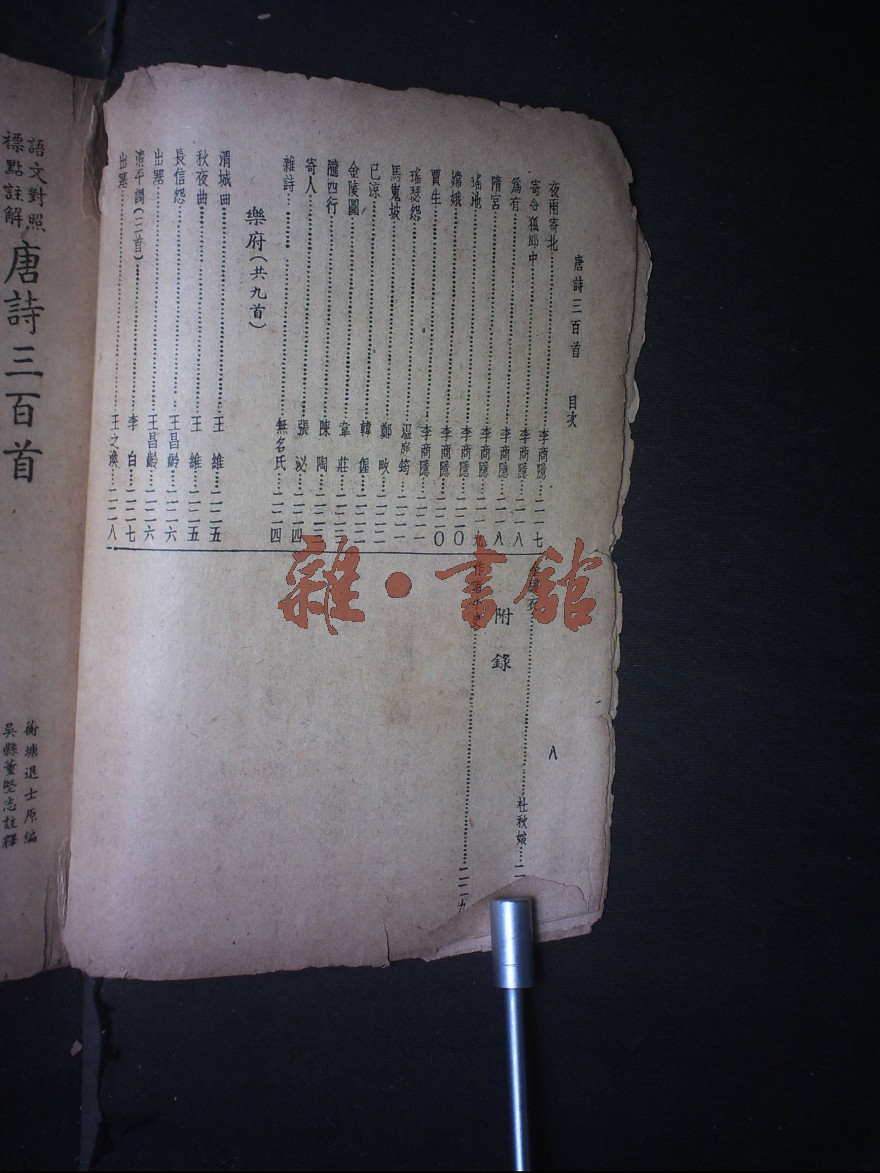 唐詩三百首 目次 八
夜雨寄北……李商隱……二一七
寄令狐郎中……李商隱……二一八
為有……李商隱……二一八
隋宮……李商隱……二一九
瑤池……李商隱……二二〇
嫦娥……李商隱……二二〇
賈生……李商隱……二二一
瑤瑟怨……温庭筠……二二一
馬嵬坡……鄭畋……二二二
已涼……韓偓……二二二
金陵圖……韋莊……二二三
隴西行……陳陶……二二三
寄人……張泌……二二四
雜詩……無名氏……二二四
樂府（共九首）
渭城曲……王維……二二五
秋夜曲……王維……二二五
長信怨……王昌齡……二二六
出塞……王昌齡……二二六
清平調（三首）……李白……二二七
出塞……王之渙……二二八
杜秋娘……二
附錄
二二九
語文對照
標點註解
唐詩三百首
蘅塘退士原編
吳縣董堅志註釋
雜·書館